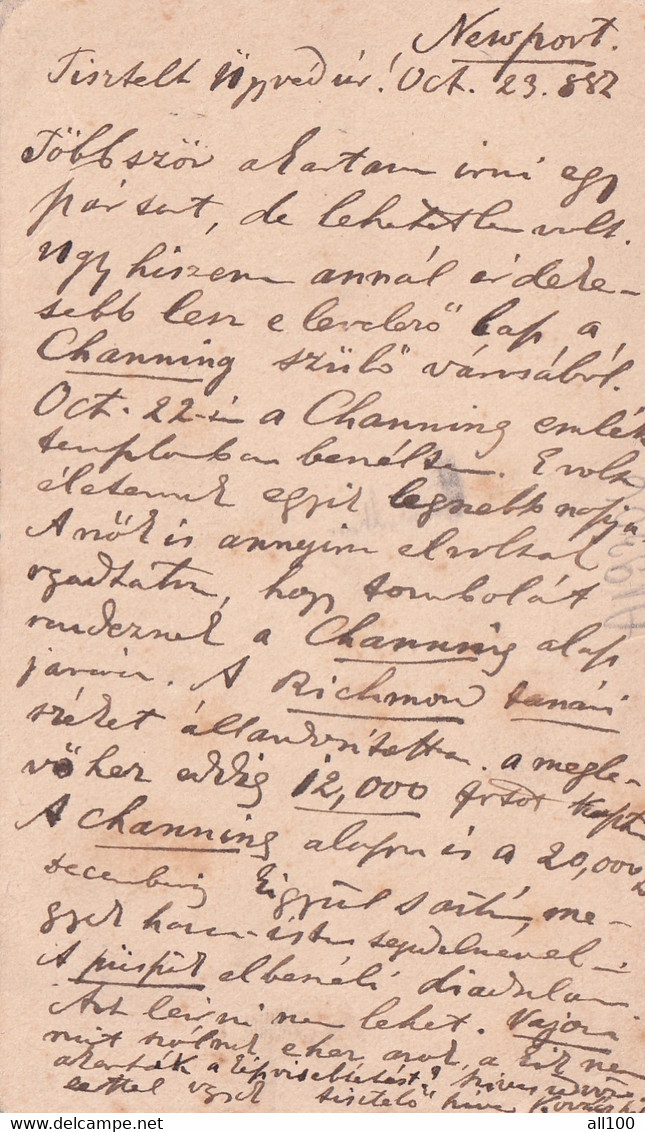 Newport.
Tisztelt Ügyvéd úr! Oct. 23. 882
Többször akartam irni egy
pár sort, de lehetetlen volt.
Ugy hiszem annál érdeke-
sebb lesz e levelező lap a
Channing szülő városából.
Oct. 22-én a Channing emlék
templomban beszéltem. E volt
életemnek egyik legszebb napja.
A nők is annyira el voltak
ragadtatva, hogy tombolát
rendeznek a Channing alap
javára. A Richmond tanári
széket állandósítottam. a megle-
vőhez eddig 12,000 frtot kaptam
A Channing alapra is a 20,000
decemberig kigyül s aztán me-
gyek haza isten segedelmével.
A püspök elbeszéli diadalom
Azt leirni nem lehet. Vajon
mit szólnak ehez azok, a kik nem
akarták a képviseltetést?
ezettel vagyok tisztelő híve Kovács
all100